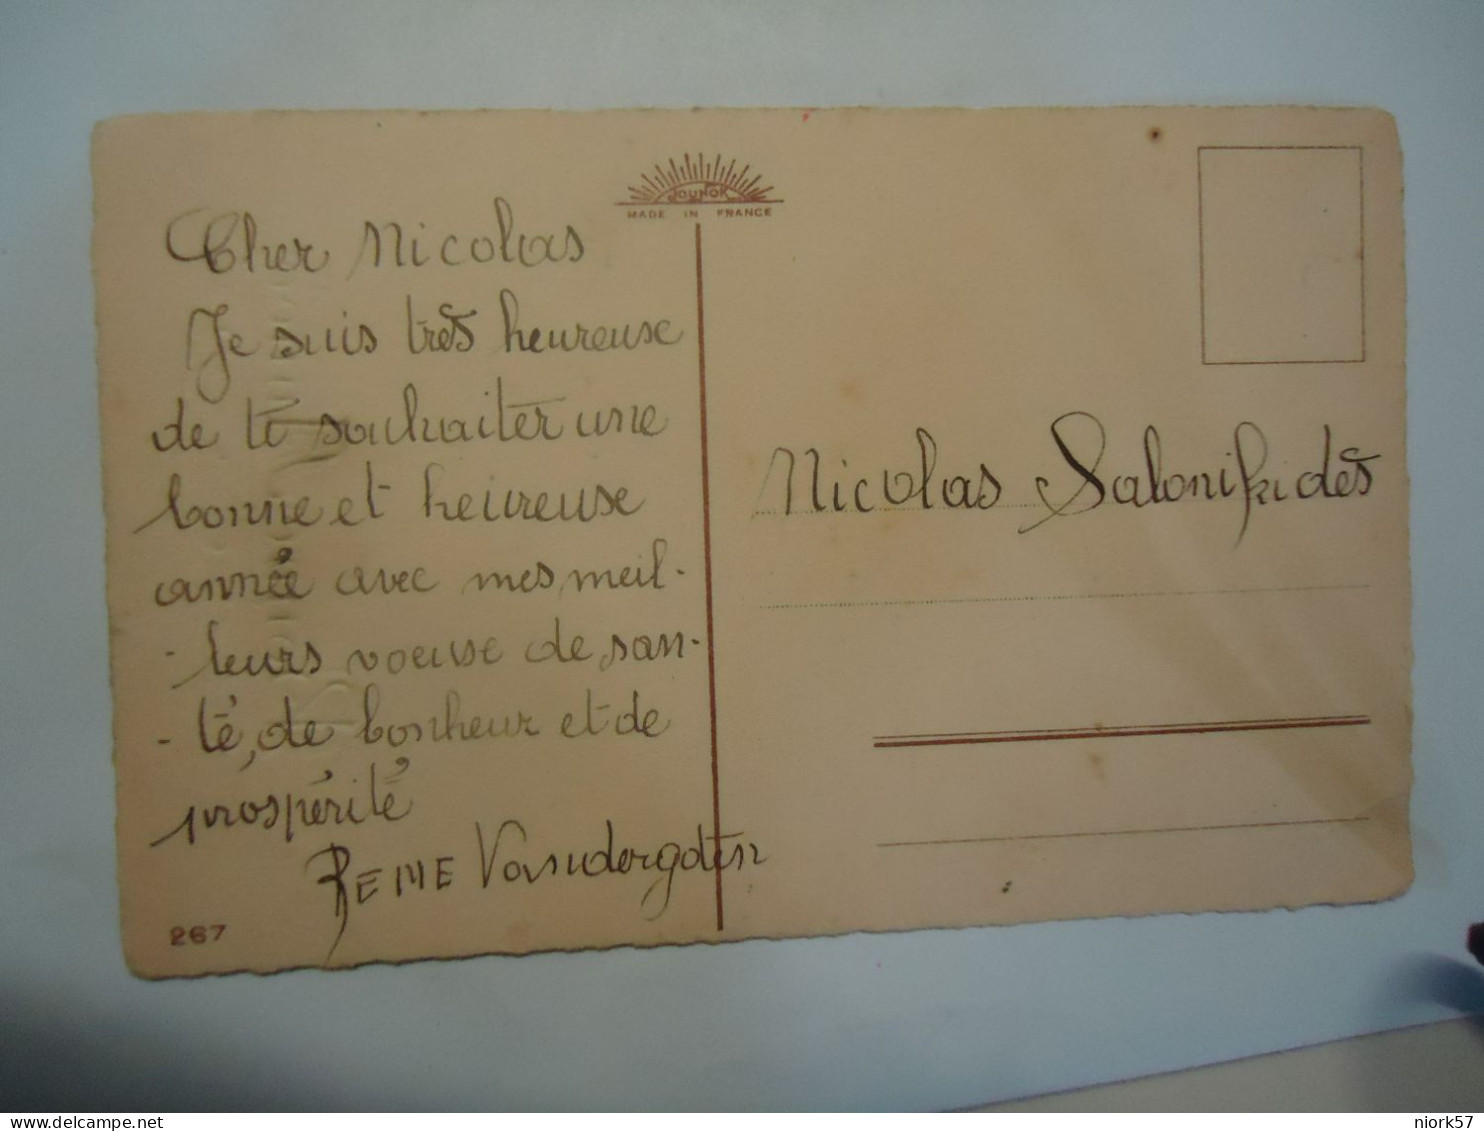 JOUNOK
MADE IN FRANCE
Cher Nicolas
Je suis très heureuse
de te souhaiter une
bonne et heureuse
année avec mes meil-
-leurs voeuse de san-
-té, de bonheur et de
prospérité
Nicolas Salonikidès
267
niork57